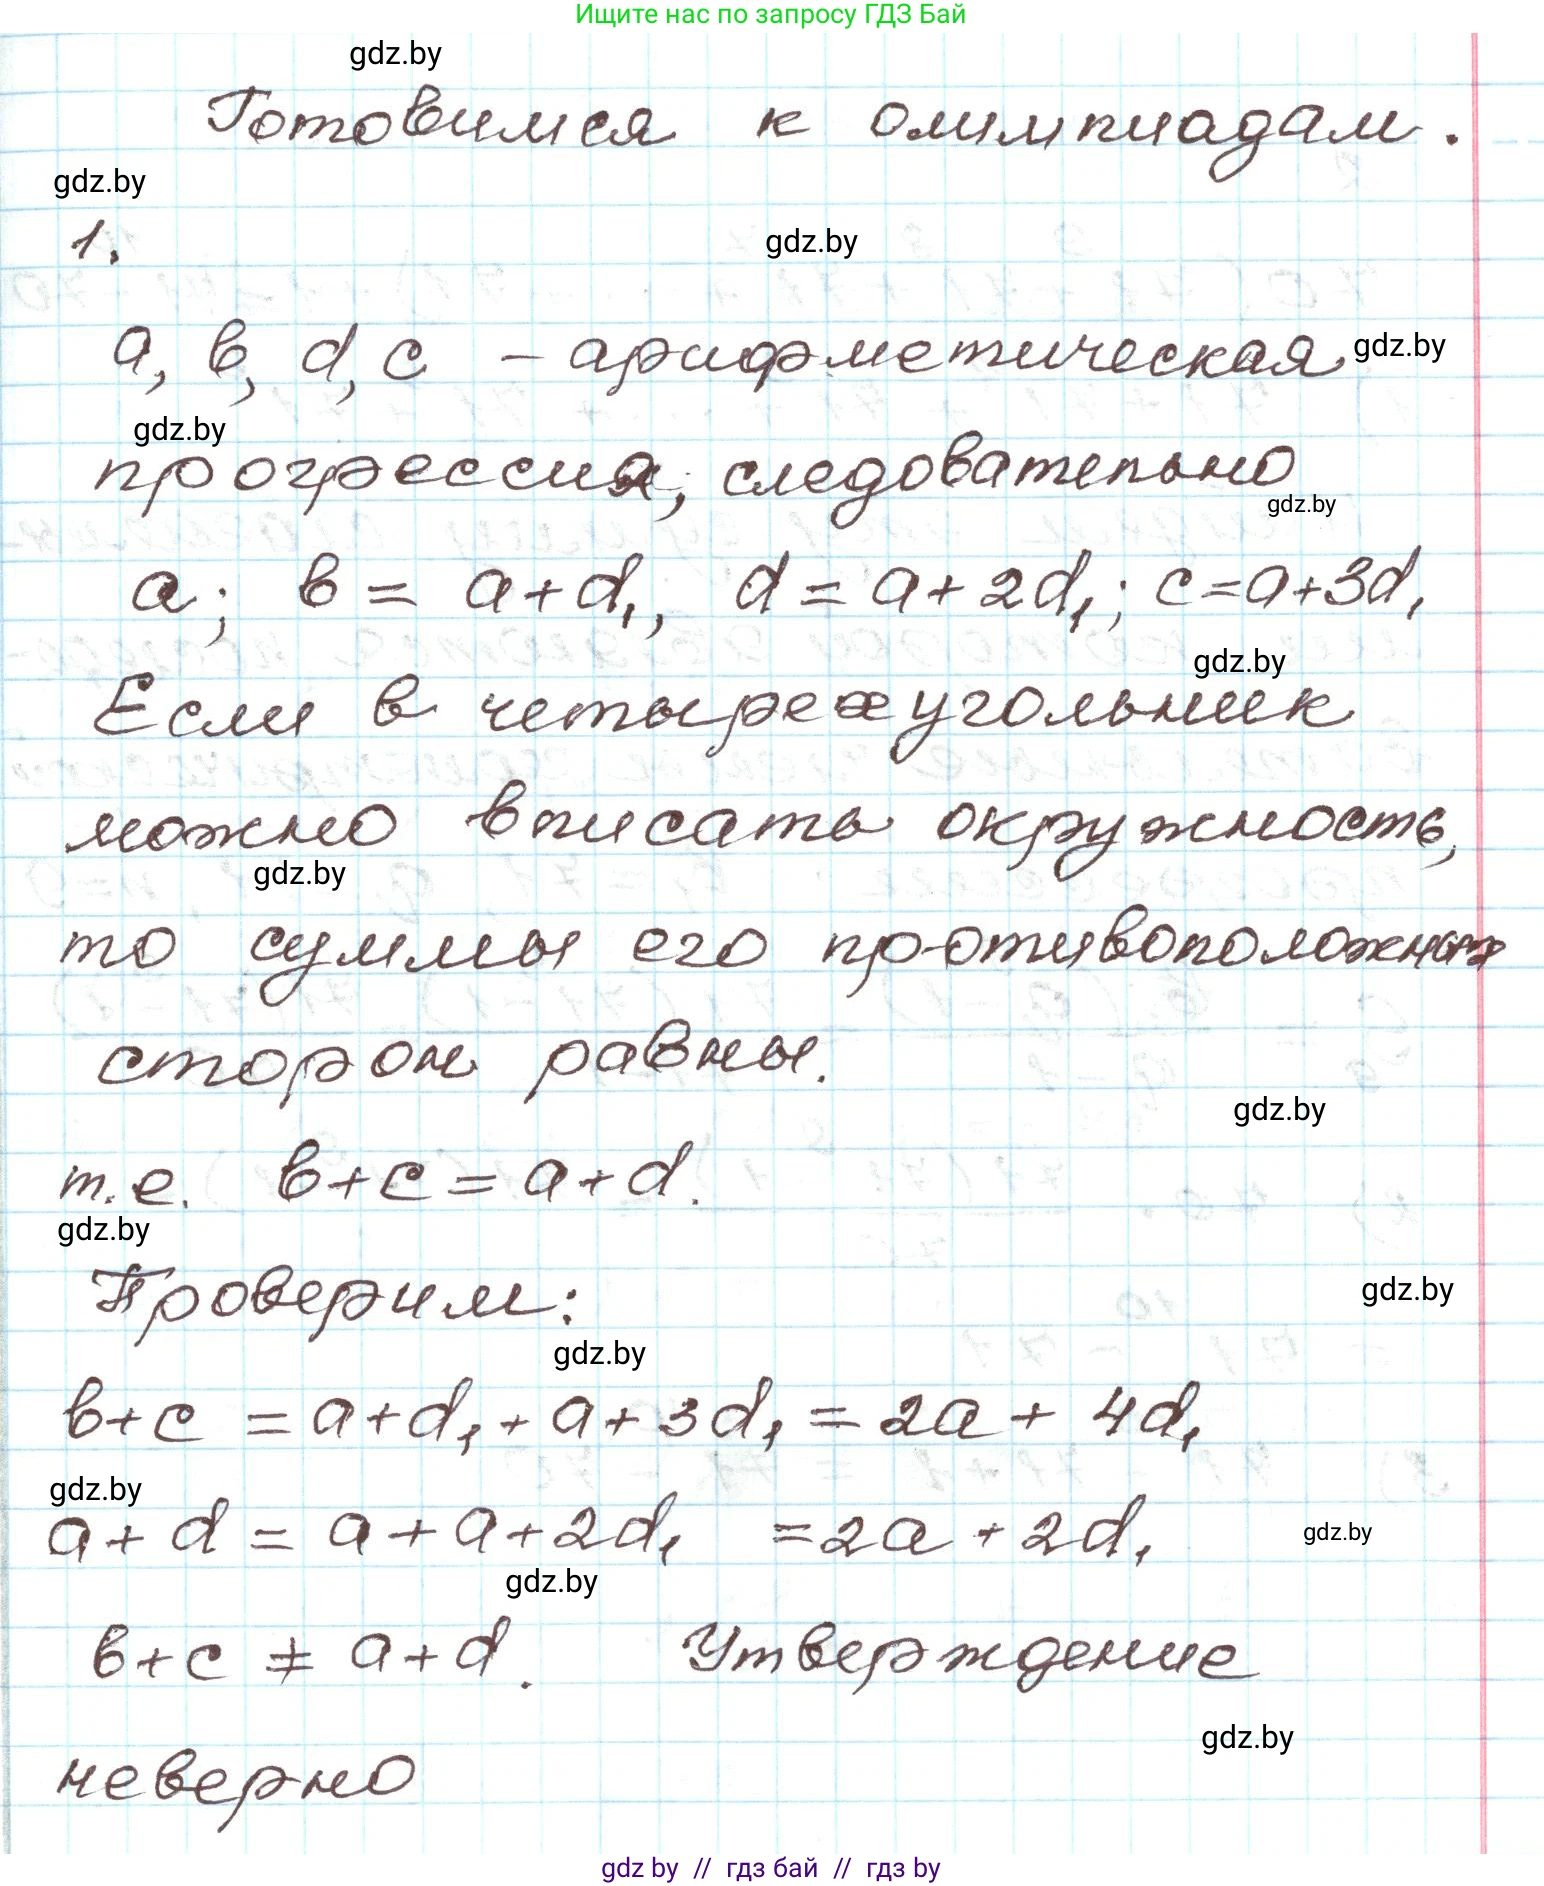 Ищите нас по запросу ГДЗ Бай
gdz.by
Готовимся к олимпиадам.
gdz.by
1.
gdz.by
а, в, d, с – арифметическая
gdz.by
gdz.by
прогрессия, следовательно
gdz.by
а; в = а+d₁, d = а+2d₁; с=а+3d₁
gdz.by
Если в четырехугольник
можно вписать окружность,
gdz.by
то суммы его противоположных
сторон равны.
gdz.by
т.е. в+с = а+d.
gdz.by
Проверим:
gdz.by
gdz.by
в+с = а+d₁+а+3d₁ = 2а + 4d₁
gdz.by
а+d = а+а+2d₁ =2а+2d₁
gdz.by
gdz.by
в+с ≠ а+d. Утверждение
gdz.by
неверно
gdz by // гдз бай // гдз by